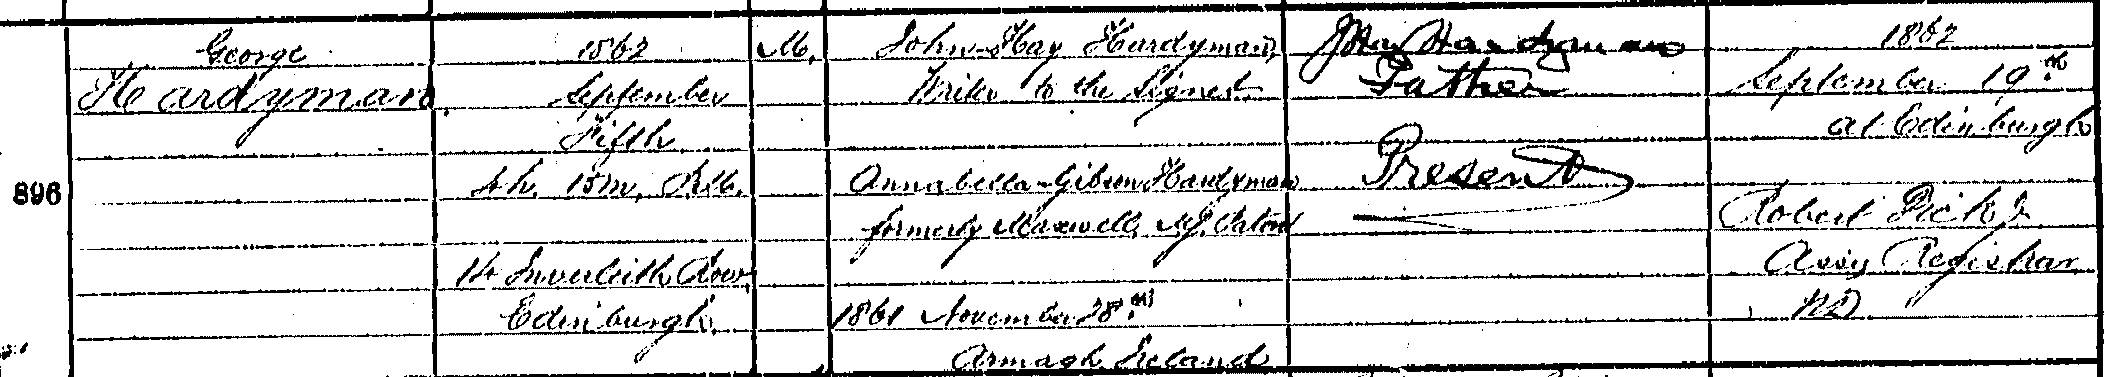 896
George
Hardyman
1862
September
Fifth
4h. 15m. P.M.
14 Inverleith Row,
Edinburgh.
M.
John Hay Hardyman,
Writer to the Signet
Annabella Gibson Hardyman
formerly Maxwell, M.S. Paton
1861 November 28th
Armagh Ireland
Jno Hay Hardyman
Father
Present
1862
September 19th
at Edinburgh
Robert Dick Jr
Assy Registrar